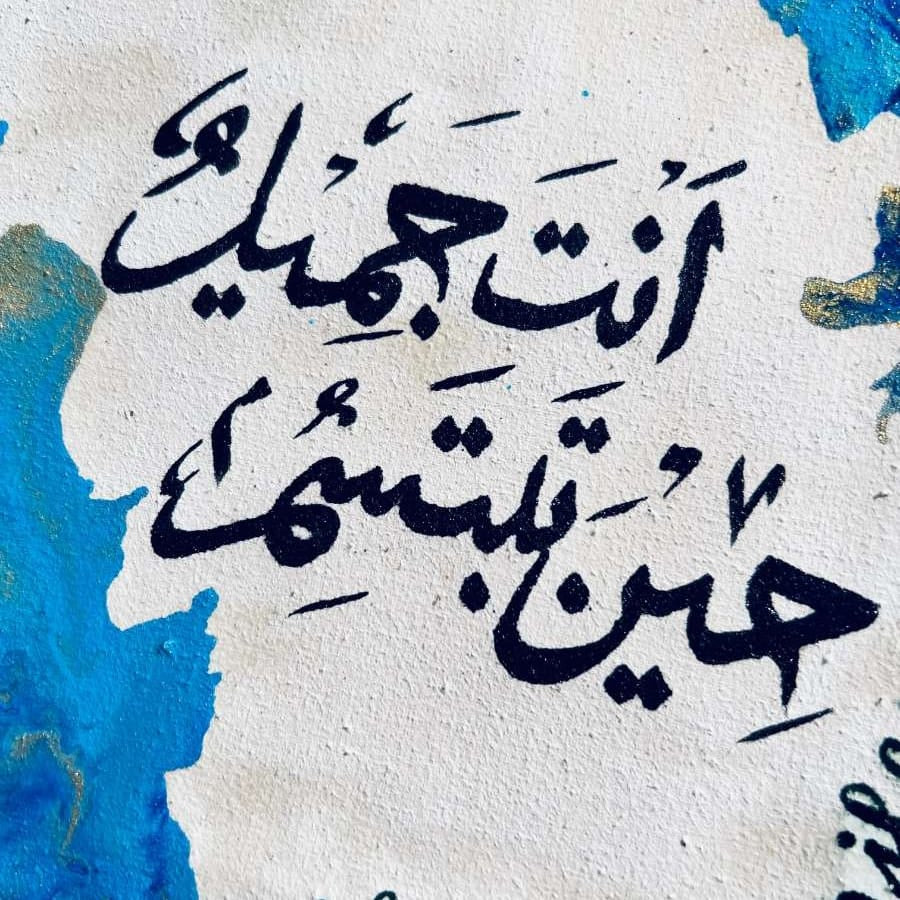 اَنْتَ جَمِيْلٌ
حِيْنَ تَبتَسِمُ